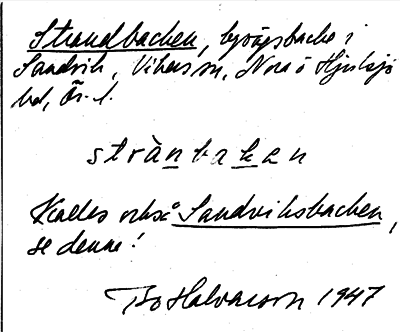 Strandbacken, byvägsbacke i
Sandvik, Vikers sn, Nora o Hjulsjö
bd, Ör. l.
strànbakan
Kallas också Sandviksbacken,
se denne!
Bo Halvarson 1947